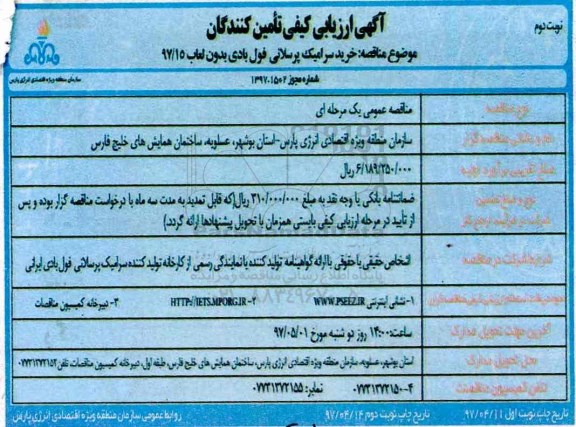 آگهی ارزیابی کیفی تأمین کنندگان
نوبت دوم
موضوع مناقصه: خرید سرامیک پرسلانی فول بادی بدون لعاب ۹۷/۱۵
سازمان منطقه ویژه اقتصادی انرژی پارس
شماره مجوز ۱۳۹۷.۱۵۰۶
نوع مناقصه
مناقصه عمومی یک مرحله ای
نام و نشانی مناقصه گزار
سازمان منطقه ویژه اقتصادی انرژی پارس -استان بوشهر، عسلویه، ساختمان همایش های خلیج فارس
مبلغ تقریبی برآورد اولیه
۶/۱۸۹/۲۵۰/۰۰۰ ریال
نوع و مبلغ تضمین
شرکت در فرآیند ارجاع کار
ضمانتنامه بانکی یا وجه نقد به مبلغ ۳۱۰/۰۰۰/۰۰۰ ریال(که قابل تمدید به مدت سه ماه با درخواست مناقصه گزار بوده و پس
از تأیید در مرحله ارزیابی کیفی بایستی همزمان با تحویل پیشنهادها ارائه گردد.)
شرایط شرکت در مناقصه
اشخاص حقیقی یا حقوقی با ارائه گواهینامه تولید کننده یا نمایندگی رسمی از کارخانه تولید کننده سرامیک پرسلانی فول بادی ایرانی
۱- نشانی اینترنتی WWW.PSEEZ.IR ۲- HTTP://IETS.MPORG.IR ۳- دبیرخانه کمیسیون مناقصات
آخرین مهلت تحویل مدارک
ساعت: ۱۴:۰۰ روز دو شنبه مورخ ۹۷/۰۵/۰۱
محل تحویل مدارک
استان بوشهر، عسلویه، سازمان منطقه ویژه اقتصادی انرژی پارس، ساختمان همایش های خلیج فارس، طبقه اول، دبیرخانه کمیسیون مناقصات، تلفن ۰۷۷۳۱۳۷۲۱۵۲
تلفن کمیسیون مناقصات
۰۷۷۳۱۳۷۲۱۵۰-۴ نمابر: ۰۷۷۳۱۳۷۲۱۵۵
تاریخ چاپ نوبت اول ۹۷/۰۴/۱۱ تاریخ چاپ نوبت دوم ۹۷/۰۴/۱۲ روابط عمومی سازمان منطقه ویژه اقتصادی انرژی پارس